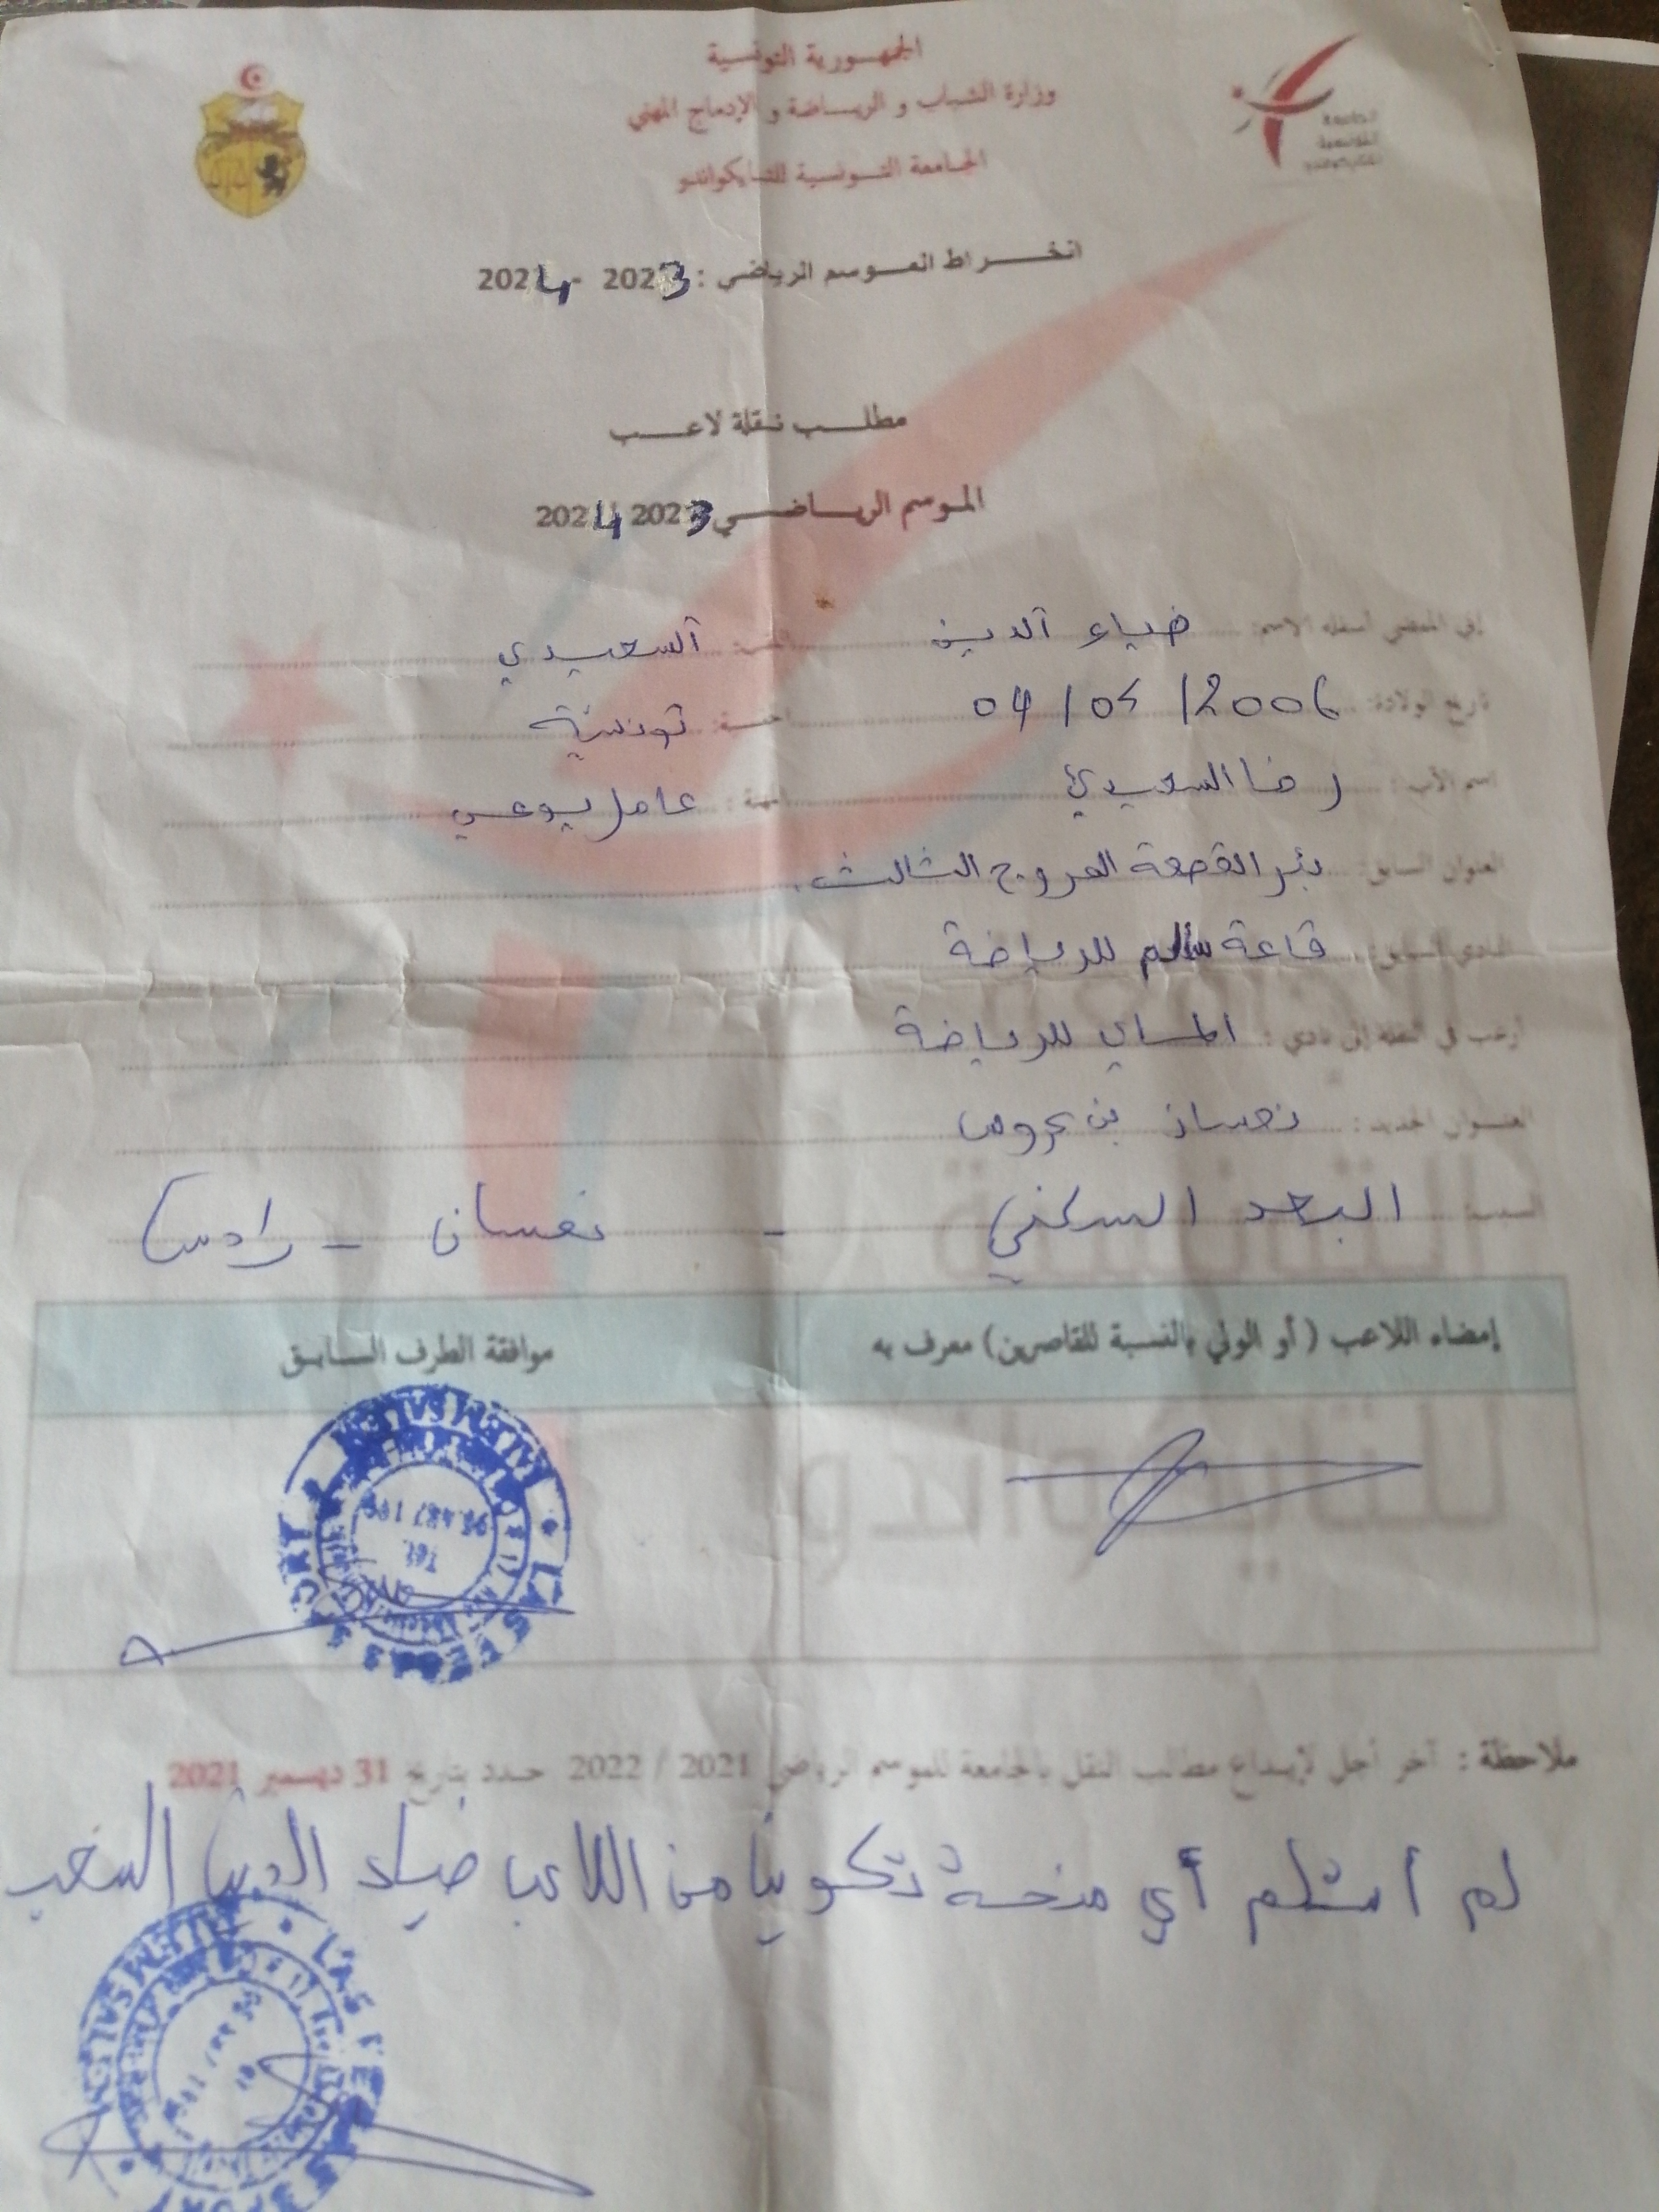 الجمهورية التونسية
وزارة الشباب و الرياضة و الإدماج المهني
الجامعة التونسية للتايكواندو
الجامعة
التونسية
للتايكواندو
انخراط الموسم الرياضي : 2023 - 2024
مطلب نقلة لاعب
الموسم الرياضي 2023 2024
إني الممضي أسفله الاسم: ضياء الدين اللقب: السعيدي
تاريخ الولادة: 04/05/2006 الجنسية: تونسية
اسم الأب: رضا السعيدي المهنة: عامل يومي
العنوان السابق: بئر القصعة المروج الثالث
النادي السابق: قاعة سالم للرياضة
أرغب في النقلة إلى نادي : للرياضة
العنوان الجديد: نعسان بن عروس
السبب: البعد السكني - نعسان - رادس
إمضاء اللاعب ( أو الولي بالنسبة للقاصرين) معرف به
موافقة الطرف السابق
SPORT
Tel
ملاحظة : آخر أجل لإيداع مطالب النقل بالجامعة للموسم الرياضي 2021 / 2022 حدد بتاريخ 31 ديسمبر 2021
لم أستلم أي منحة تكوينا من اللاعب ضياء الدين